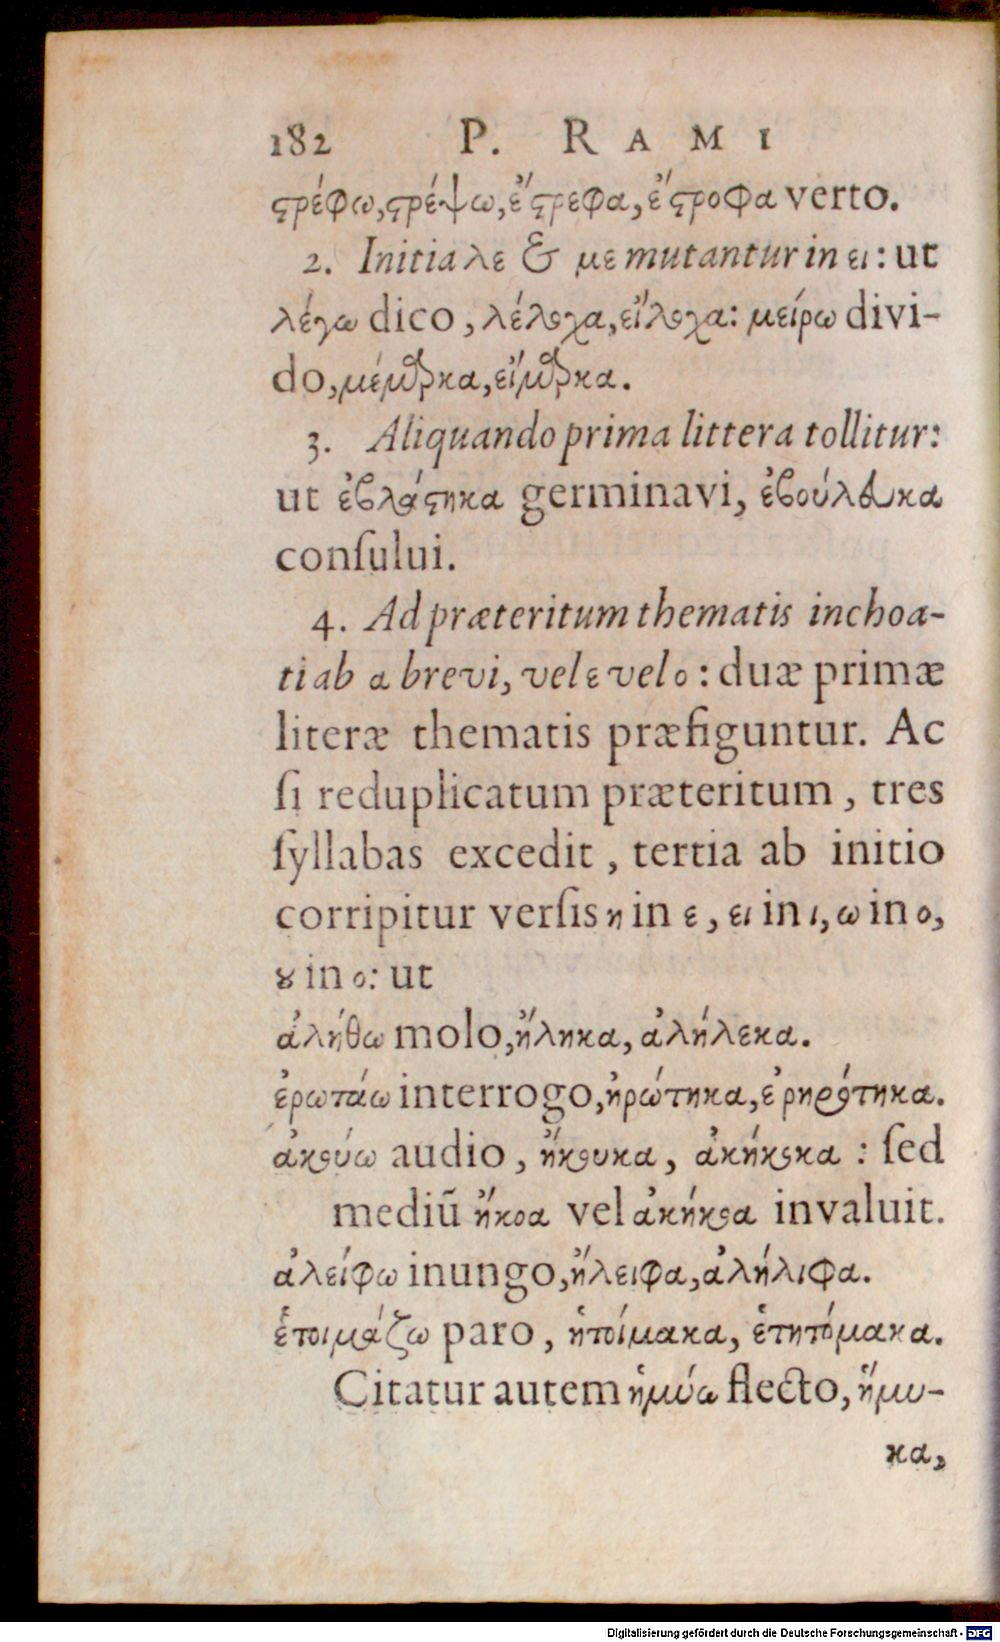 182 P. RAMI
ϛρέφω, ϛρέψω, ἔϛρεφα, ἔϛροφα verto.
2. Initia λε & με mutantur in ει: ut
λέγω dico, λέλοχα, εἴλοχα: μείρω divi-
do, μέμορκα, εἴμορκα.
3. Aliquando prima littera tollitur:
ut ἐβλάϛηκα germinavi, ἐβούλευκα
conſului.
4. Ad præteritum thematis inchoa-
ti ab α brevi, vel ε vel ο: duæ primæ
literæ thematis præfiguntur. Ac
ſi reduplicatum præteritum, tres
ſyllabas excedit, tertia ab initio
corripitur verſis η in ε, ει in ι, ω in ο,
ȣ in ο: ut
ἀλήθω molo, ἤληκα, ἀλήλεκα.
ἐρωτάω interrogo, ἠρώτηκα, ἐρηρότηκα.
ἀκούω audio, ἤκουκα, ἀκήκοκα : ſed
mediũ ἤκοα vel ἀκήκοα invaluit.
ἀλείφω inungo, ἤλειφα, ἀλήλιφα.
ἑτοιμάζω paro, ἡτοίμακα, ἑτητόμακα.
Citatur autem ἠμύω flecto, ἤμυ-
κα,
Digitalisierung gefördert durch die Deutsche Forschungsgemeinschaft - DFG